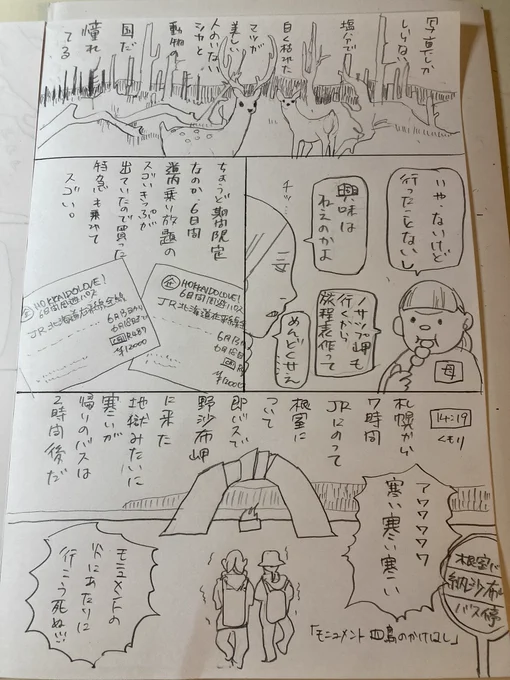 写真しか
しらない
塩分で
白く枯れた
マツが
美しい
人のいない
シカと
動物の
国だ
憧れ
てる
いや…ないけど
行ったことないし
興味は
ねえのかよ
チッ…
ノサップ岬も
行くから
旅程表作って
めんどくせえ
母
ちょうど期間限定
なのか、6日間
道内乗り放題の
スゴいきっぷが
出ていたので買った
特急も乗れて
スゴい。
企 HOKKAIDOLOVE!
6日間周遊パス
JR北海道在来線全線
6月13日から
6月18日まで
R487
¥12000
企 HOKKAIDOLOVE!
6日間周遊パス
JR北海道在来線全
6月13
6月18日
¥12000
14:19
くもり
札幌から
7時間
JRにのって
根室に
ついて
即バスで
野沙布岬
に来た
地獄みたいに
寒いが
帰りのバスは
2時間後だ
アワワワワワ
寒い寒い寒い
モニュメントの
火にあたりに
行こう死ぬ!!!
根室
納沙布
バス停
「モニュメント 四島のかけはし」